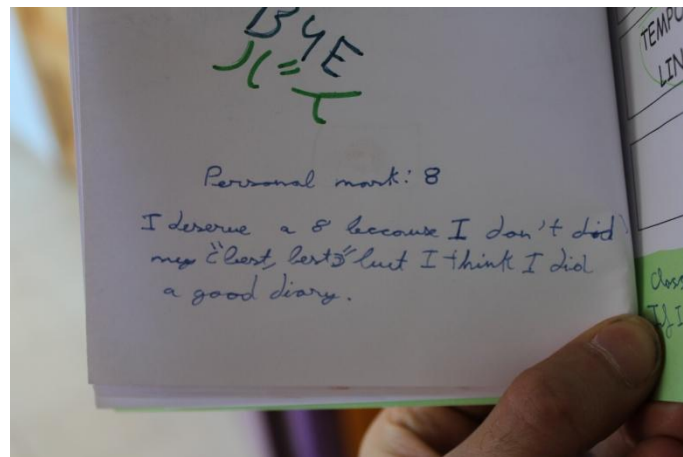 BYE
Personal mark: 8
I deserve a 8 because I don't did
my "best, best" but I think I did
a good diary.
TEMPO
LIN
Class
If I